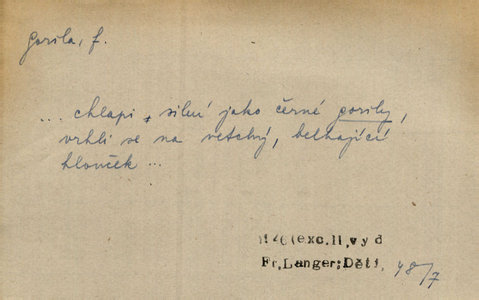 gorila, f.
... chlapi, silní jako černé gorily,
vrhli se na vetchý, belhající
hlouček ...
1946(exc.II,vyd
Fr.Langer:Děti, 48/7